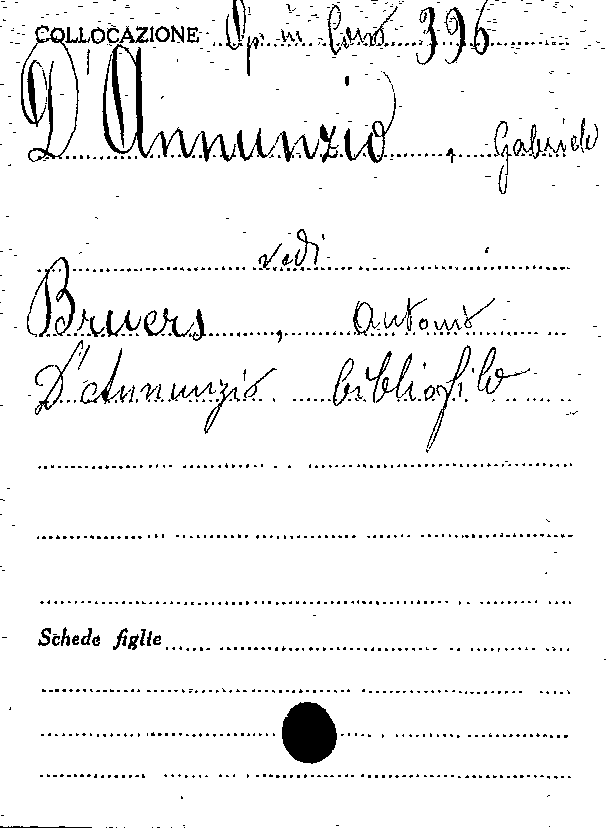 COLLOCAZIONE Op. in Cons 396
D'Annunzio, Gabriele
vedi
Bruers, Antonio
D'Annunzio bibliofilo
Schede figlie